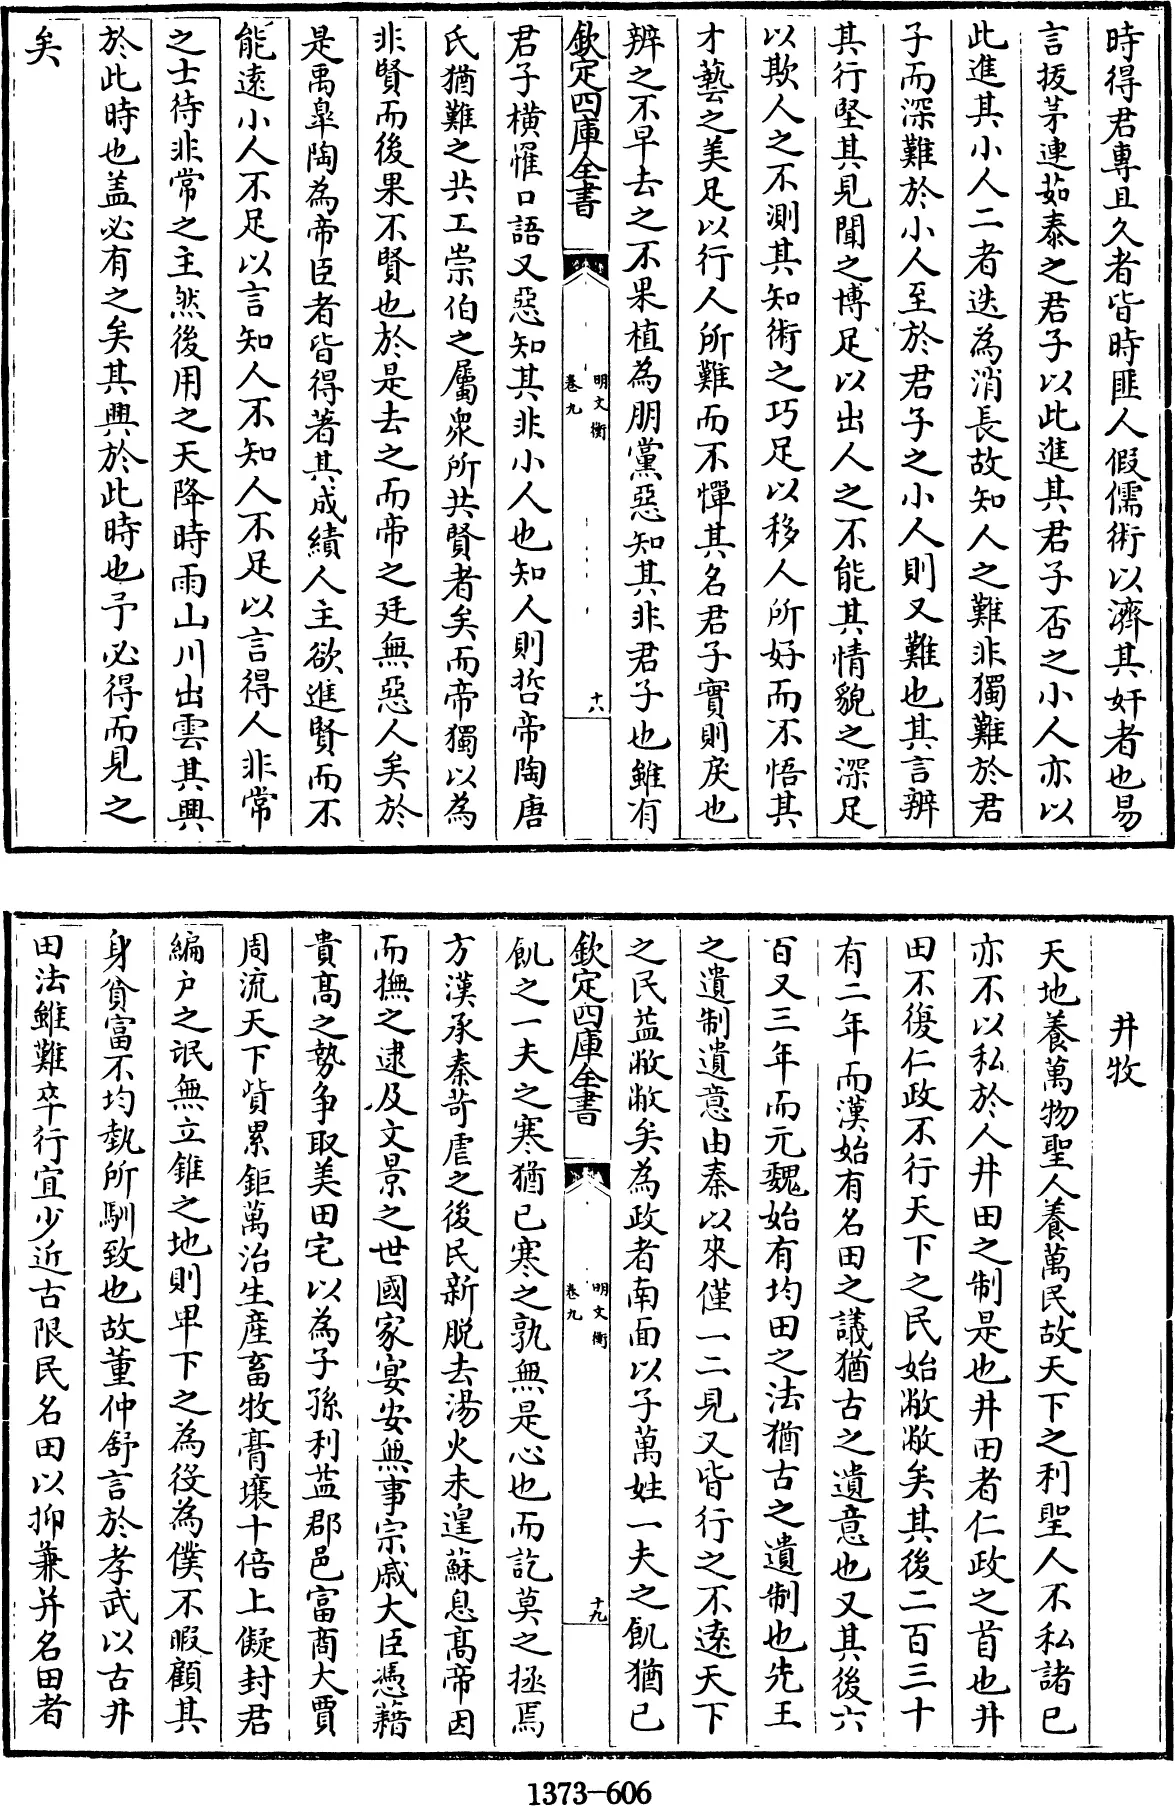 時得君專且久者皆時匪人假儒術以濟其奸者也易
言拔茅連茹泰之君子以此進其君子否之小人亦以
此進其小人二者迭為消長故知人之難非獨難於君
子而深難於小人至於君子之小人則又難也其言辨
其行堅其見聞之博足以出人之不能其情貌之深足
以欺人之不測其知術之巧足以移人所好而不悟其
才藝之美足以行人所難而不憚其名君子實則戾也
辨之不早去之不果植為朋黨惡知其非君子也雖有
欽定四庫全書
明文衡
卷九
十八
君子橫罹口語又惡知其非小人也知人則哲帝陶唐
氏猶難之共工崇伯之屬衆所共賢者矣而帝獨以為
非賢而後果不賢也於是去之而帝之廷無惡人矣於
是禹臯陶為帝臣者皆得著其成績人主欲進賢而不
能逺小人不足以言知人不知人不足以言得人非常
之士待非常之主然後用之天降時雨山川出雲其興
於此時也盖必有之矣其興於此時也予必得而見之
矣
井牧
天地養萬物聖人養萬民故天下之利聖人不私諸已
亦不以私於人井田之制是也井田者仁政之首也井
田不復仁政不行天下之民始敝敝矣其後二百三十
有二年而漢始有名田之議猶古之遺意也又其後六
百又三年而元魏始有均田之法猶古之遺制也先王
之遺制遺意由秦以來僅一二見又皆行之不逺天下
之民益敝敝矣為政者南面以子萬姓一夫之飢猶已
欽定四庫全書
明文衡
卷九
十九
飢之一夫之寒猶已寒之孰無是心也而訖莫之拯焉
方漢承秦苛虐之後民新脱去湯火未遑蘇息髙帝因
而撫之逮及文景之世國家宴安無事宗戚大臣憑藉
貴髙之勢争取美田宅以為子孫利益郡邑富商大賈
周流天下貲累鉅萬治生産畜牧膏壤十倍上儗封君
編户之氓無立錐之地則卑下之為役為僕不暇顧其
身貧富不均埶所馴致也故董仲舒言於孝武以古井
田法雖難卒行宜少近古限民名田以抑兼并名田者
1373—606